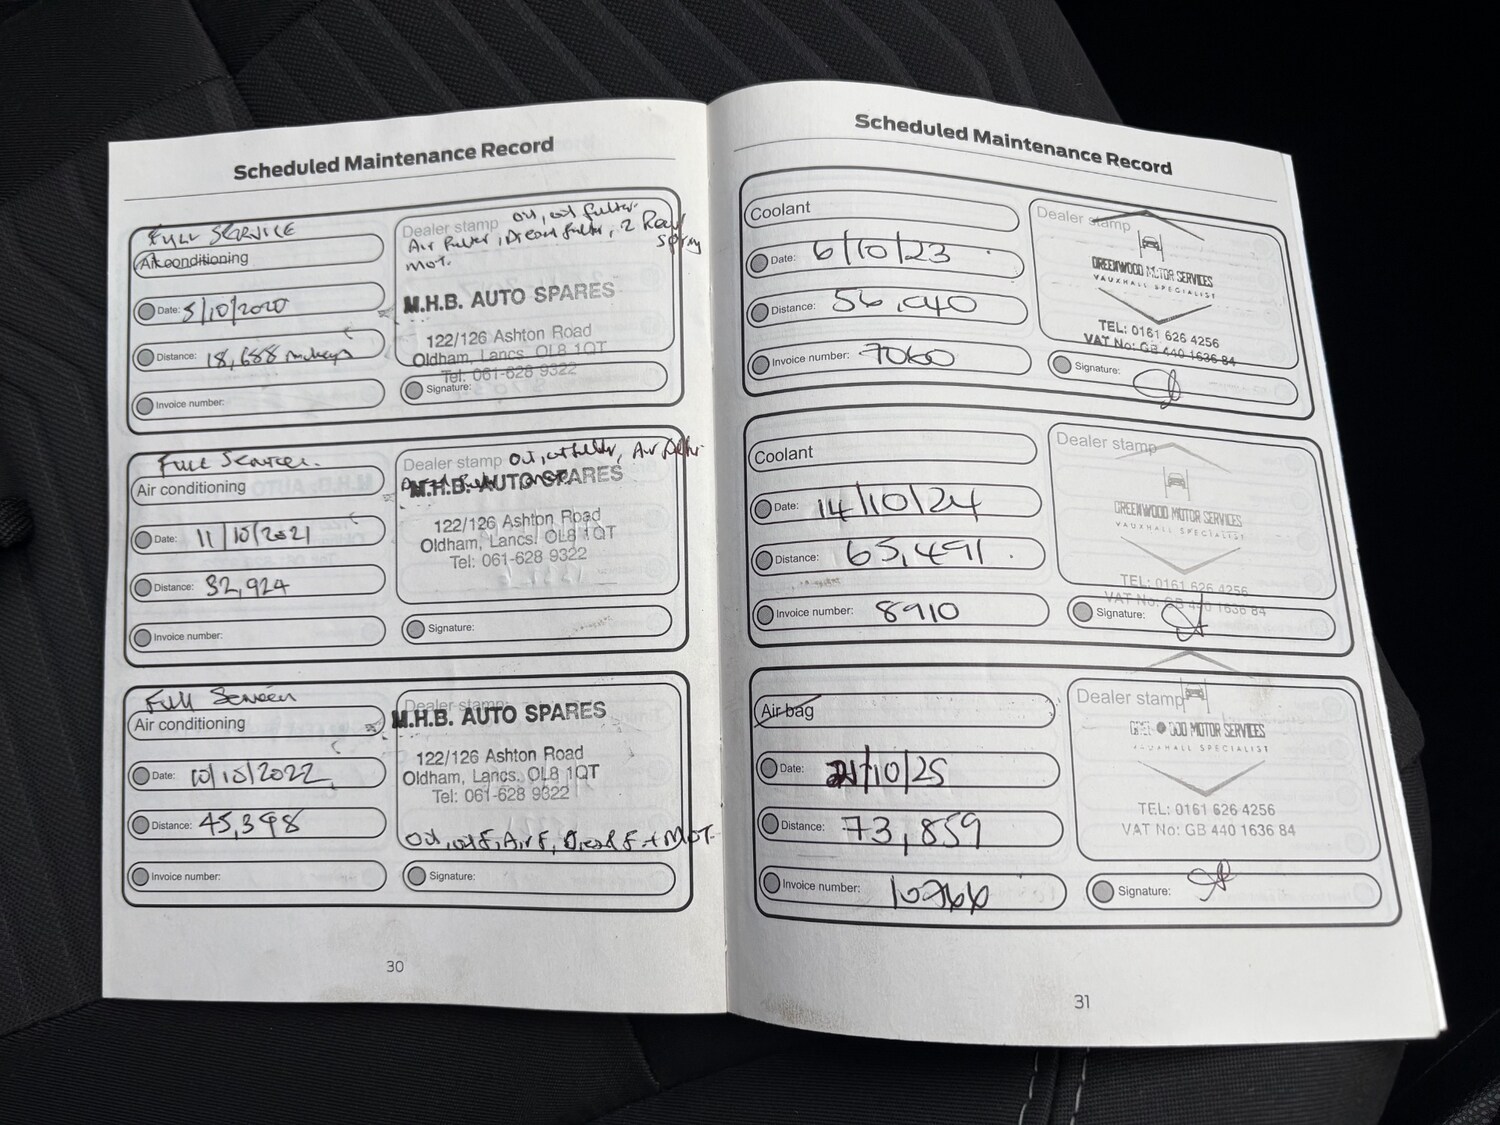 Scheduled Maintenance Record
FULL SERVICE
Air conditioning
Date: 5/10/2020
Distance: 18,688
Invoice number:
Dealer stamp oil, oil filter.
Air filter, Diesel filter, 2 Rear
Spray
MOT.
M.H.B. AUTO SPARES
122/126 Ashton Road
Oldham, Lancs. OL8 1QT
Tel: 061-628 9322
Signature:
Full Service.
Air conditioning
Date: 11/10/2021
Distance: 32,924
Invoice number:
Dealer stamp Oil, oil filter, Air filter
M.H.B. AUTO SPARES
122/126 Ashton Road
Oldham, Lancs. OL8 1QT
Tel: 061-628 9322
Signature:
Full Service
Air conditioning
Date: 10/10/2022
Distance: 45,398
Invoice number:
Dealer stamp
M.H.B. AUTO SPARES
122/126 Ashton Road
Oldham, Lancs. OL8 1QT
Tel: 061-628 9322
Oil, oil F, Air F, Diesel F + MOT.
Signature:
30
Scheduled Maintenance Record
Coolant
Date: 6/10/23
Distance: 56,040
Invoice number: 7060
Dealer stamp
GREENWOOD MOTOR SERVICES
VAUXHALL SPECIALIST
TEL: 0161 626 4256
VAT No: GB 440 1636 84
Signature:
Coolant
Date: 14/10/24
Distance: 65,491
Invoice number: 8910
Dealer stamp
GREENWOOD MOTOR SERVICES
VAUXHALL SPECIALIST
TEL: 0161 626 4256
VAT No: GB 440 1636 84
Signature:
Air bag
Date: 21/10/25
Distance: 73,859
Invoice number:
Dealer stamp
MOTOR SERVICES
VAUXHALL SPECIALIST
TEL: 0161 626 4256
VAT No: GB 440 1636 84
Signature:
31